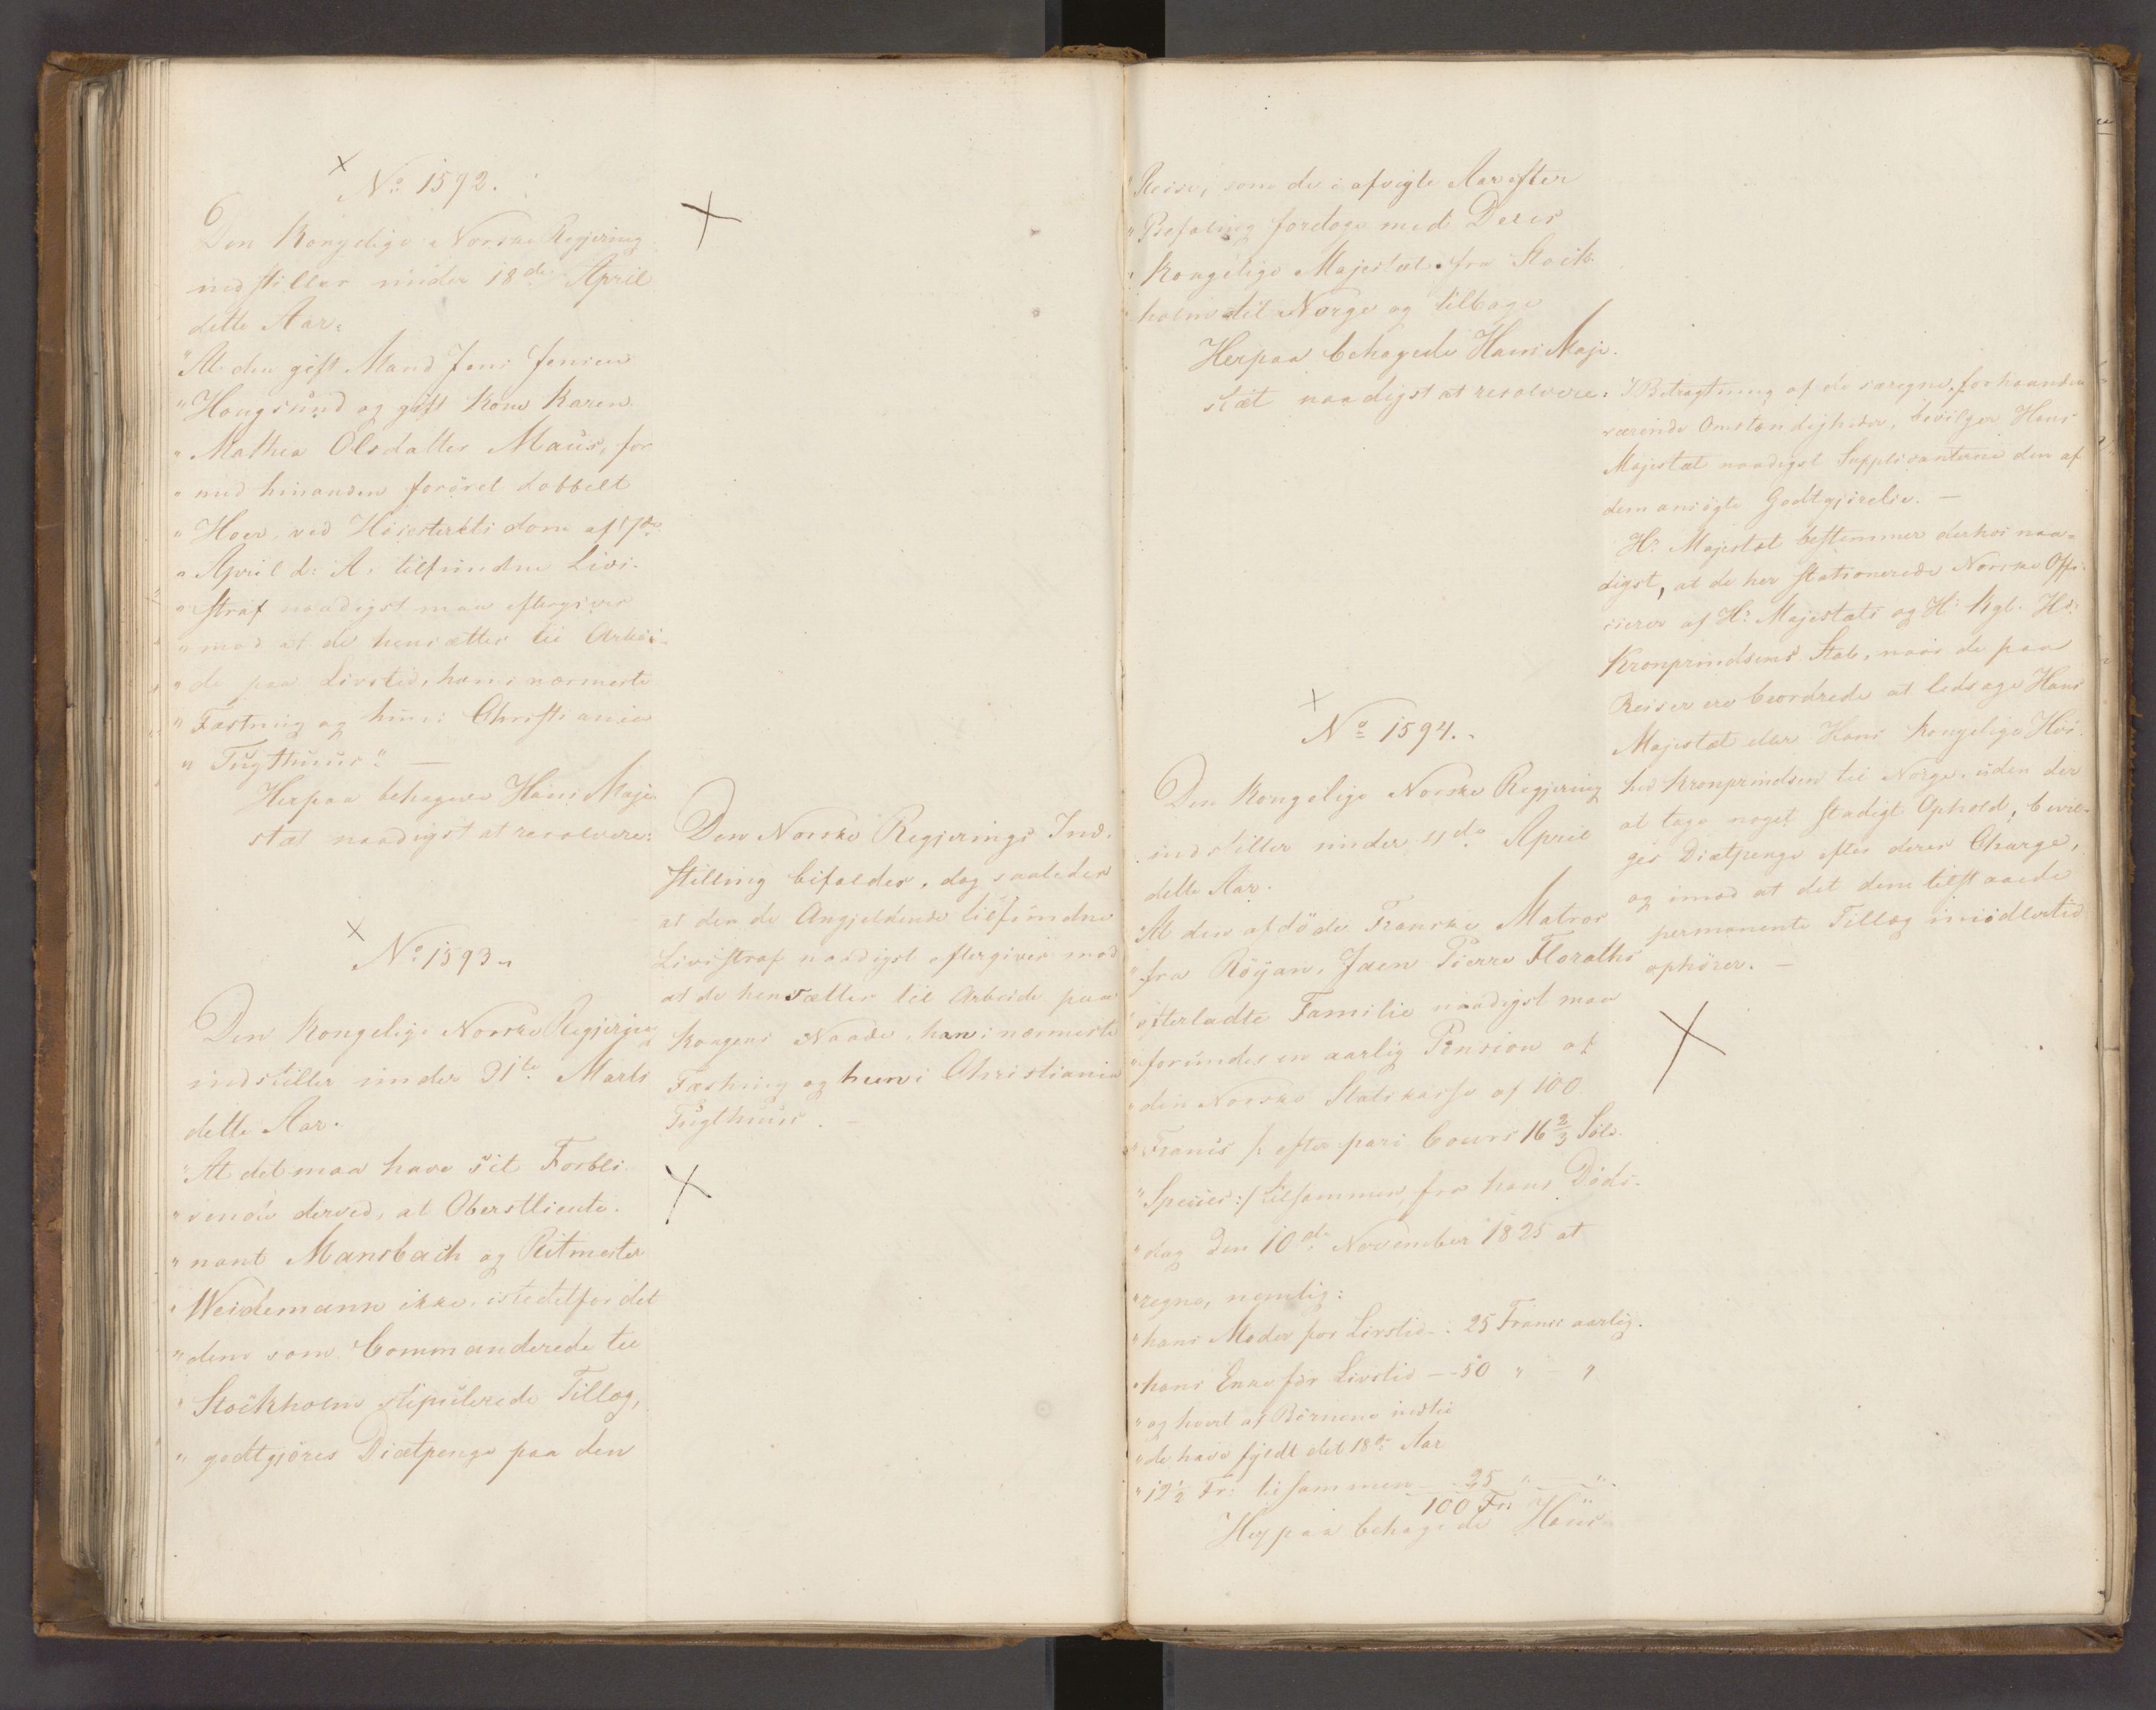 No 1592.
Den Kongelige Norske Regjering
indstiller under 18de April
dette Aar:
"At den gift Mand Jens Jensen
"Hougsund og gift Kone Karen
"Mathea Olsdatter Maus, for
"med hinanden forøvet dobbelt
"Hoer, ved Høiesterets dom af 17de
"April d: A. tilfundne Livs-
"straf naadigst maa eftergives
"mod at de hensættes til Arbei-
"de paa Livstid, han i nærmeste
"Fæstning og hun i Christiania
"Tugthuus". —
Herpaa behagede Hans Maje-
stæt naadigst at resolvere:
Den Norske Regjerings Ind-
stilling bifaldes, dog saaledes
at den de Angjeldende tilfundne
Livsstraf naadigst eftergives mod
at de hensættes til Arbeide paa
Kongens Naade, han i nærmeste
Fæstning og hun i Christiania
Tugthuus. —
No 1593.
Den Kongelige Norske Regjering
indstiller under 31te Marts
dette Aar.
"At det maa have sit Forbli-
"vende derved, at Oberstlieute-
"nant Mansbach og Ritmester
"Weidemann ikke, istedetfor det
"dem som Commanderede til
"Stockholm stipulerede Tillæg,
"godtgjøres Diætpenge paa den
"Reise, som de i afvigte Aar efter
"Befaling foretoge med Deres
"Kongelige Majestæt fra Stock-
"holm til Norge og tilbage
Herpaa behagede Hans Maje-
stæt naadigst at resolvere:
I Betragtning af de særegne forhaanden
værende Omstændigheder, bevilger Hans
Majestæt naadigst Supplicanterne den af
dem ansøgte Godtgjørelse. —
Hs Majestæt bestemmer derhos naa-
digst, at de her stationerede Norske Offi-
cierer af Hs Majestæts og Hs Kgl. Hds
Kronprindsens Stab, naar de paa
Reiser ere beordrede at ledsage Hans
Majestæt eller Hans Kongelige Høi-
hed Kronprindsen til Norge, uden der
at tage noget stadigt Ophold, bevil-
ges Diætpenge efter deres Charge,
og imod at det dem tilstaaede
permanente Tillæg imidlertid
ophører. —
No 1594.
Den Kongelige Norske Regjering
indstiller under 11te April
dette Aar.
"At den afdøde Franske Matros
"fra Röyan, Jaen Pierre Floraths
"efterladte Familie naadigst maa
"forundes en aarlig Pension af
"den Norske Statskasse af 100
"Francs /: efter pari Cours 16 2/3 Sølv
"Species:/ tilsammen, fra hans Døds-
"dag den 10de November 1825 at
"regne, nemlig:
"hans Moder for Livstid : 25 Francs aarlig.
"hans Enke for Livstid — 50 " — "
"og hvert af Børnene indtil
"de have fyldt det 18de Aar
"12 1/2 Fr: tilsammen 25 " — "
100 Frs
Herpaa behagede Hans